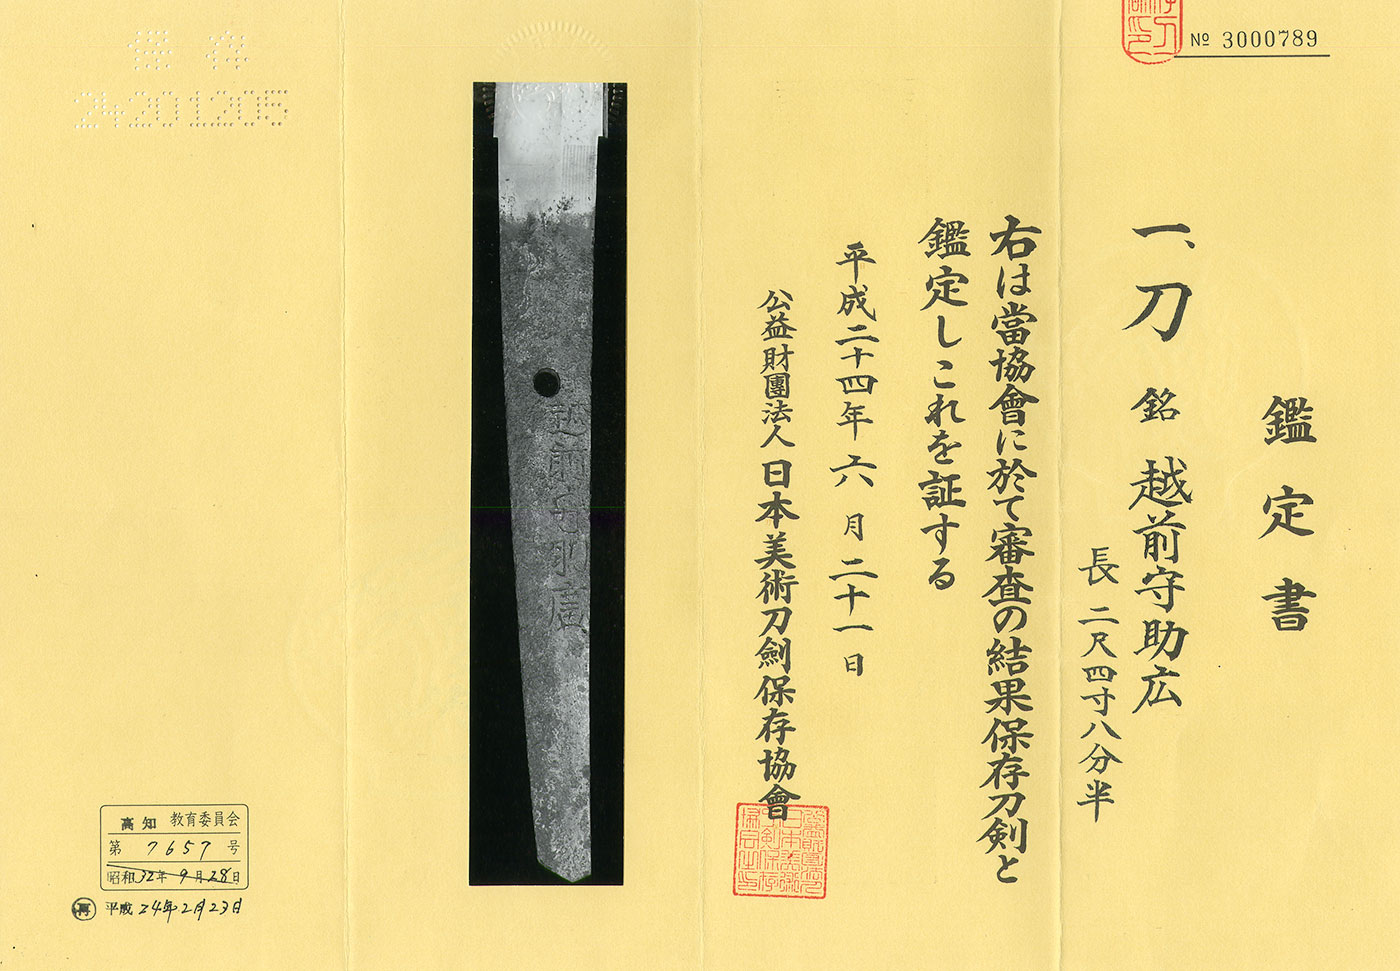 № 3000789
鑑定書
一、刀 銘 越前守助広
長 二尺四寸八分半
右は當協會に於て審査の結果保存刀剣と
鑑定しこれを証する
平成二十四年六月二十一日
公益財團法人日本美術刀劍保存協會
越前守助廣
保存
24201205
高知 教育委員会
第 7657 号
昭和32年9月28日
再 平成24年2月23日